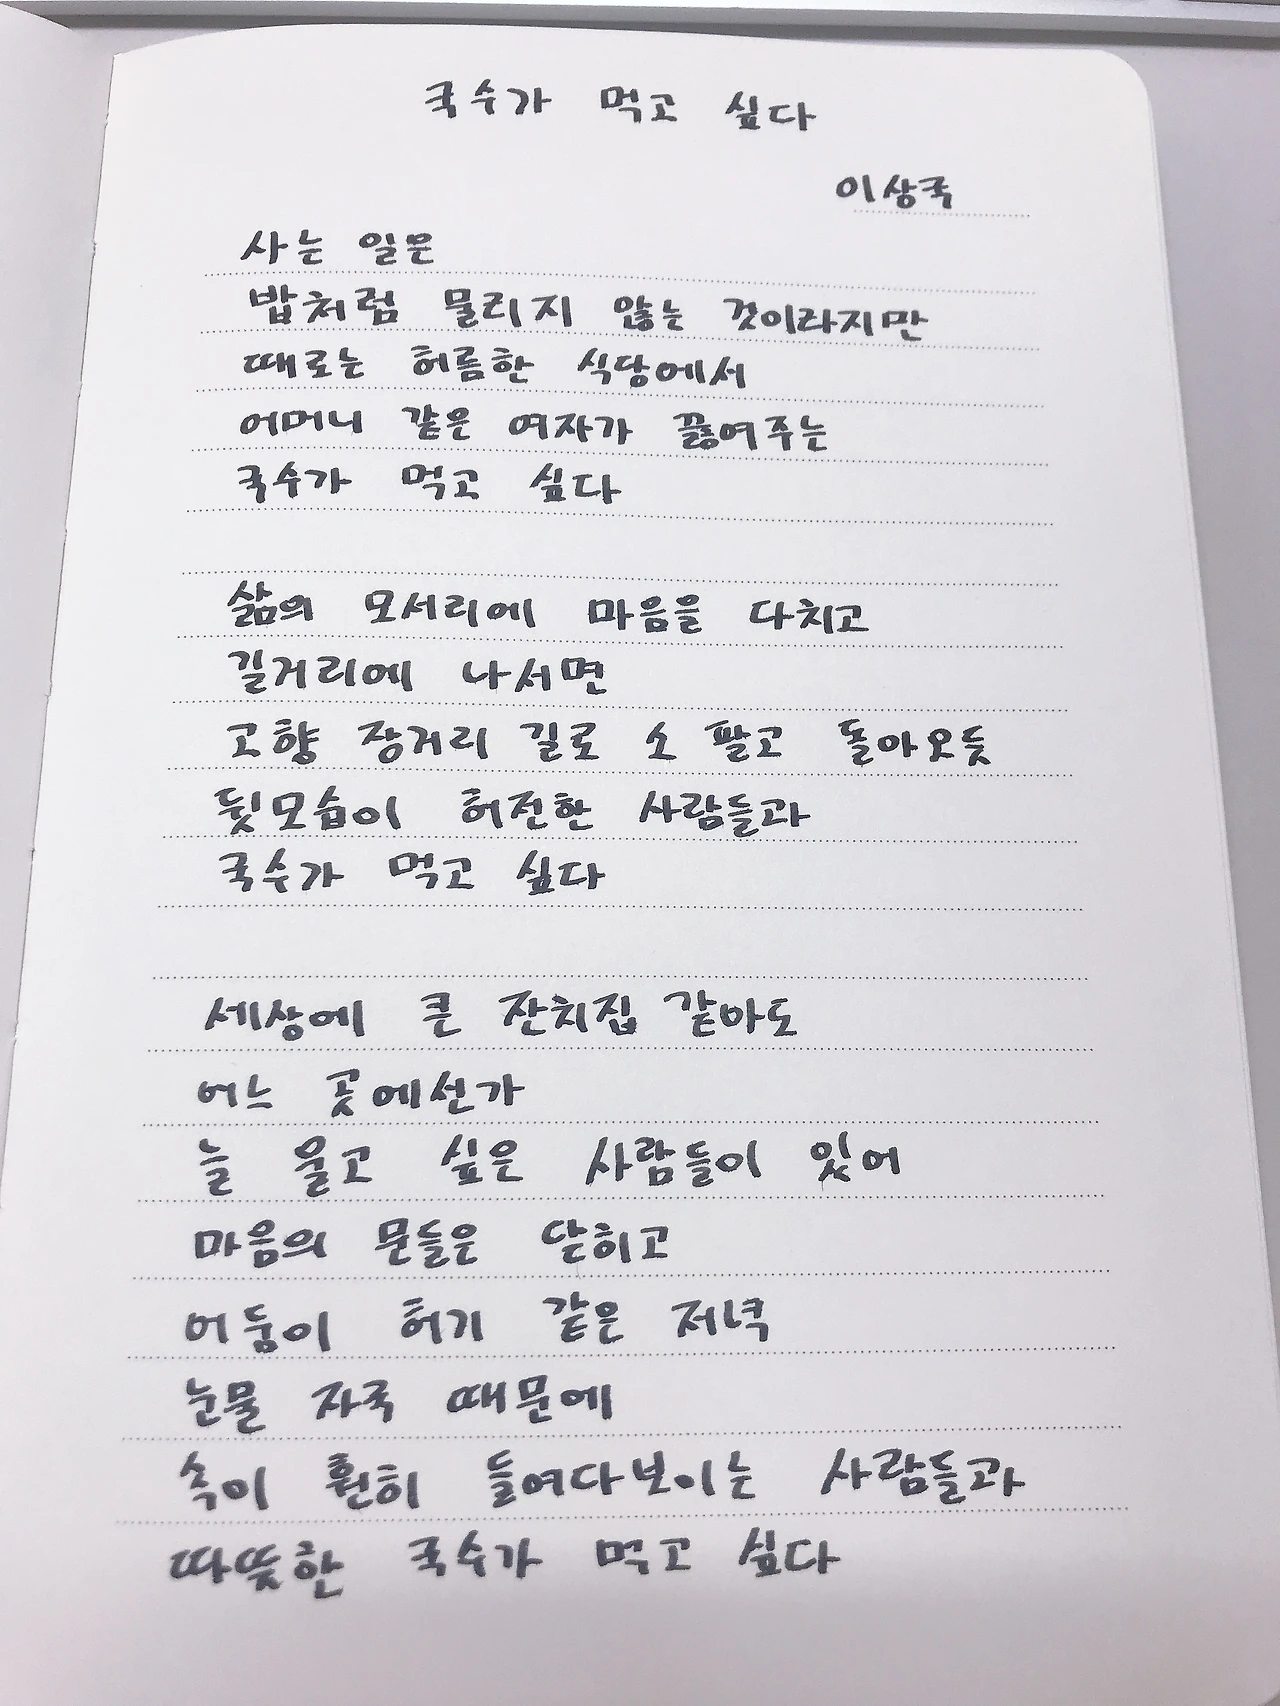 국수가 먹고 싶다
이상국
사는 일은
밥처럼 물리지 않는 것이라지만
때로는 허름한 식당에서
어머니 같은 여자가 끓여주는
국수가 먹고 싶다
삶의 모서리에 마음을 다치고
길거리에 나서면
고향 장거리 길로 소 팔고 돌아오듯
뒷모습이 허전한 사람들과
국수가 먹고 싶다
세상에 큰 잔치집 같아도
어느 곳에선가
늘 울고 싶은 사람들이 있어
마음의 문들은 닫히고
어둠이 허기 같은 저녁
눈물 자국 때문에
속이 훤히 들여다보이는 사람들과
따뜻한 국수가 먹고 싶다